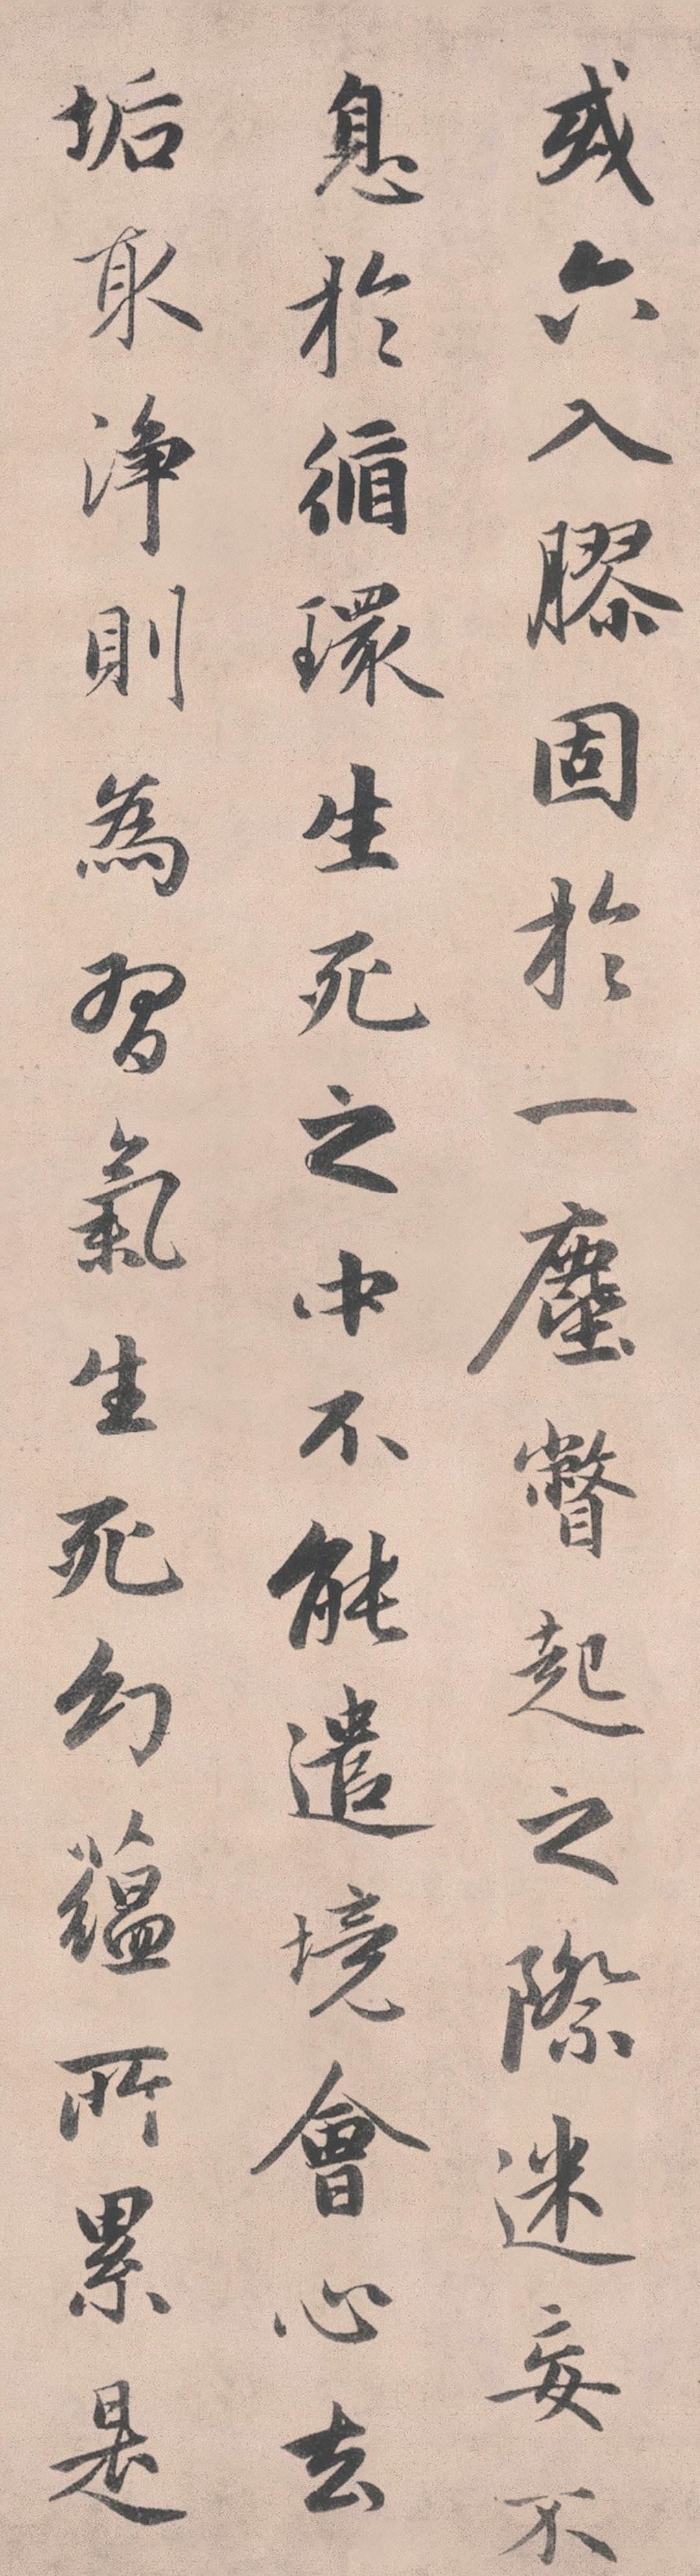 或六入膠固於一塵瞥起之際迷妄不
息於循環生死之中不能遣境會心去
垢取淨則為習氣生死幻蘊所累是